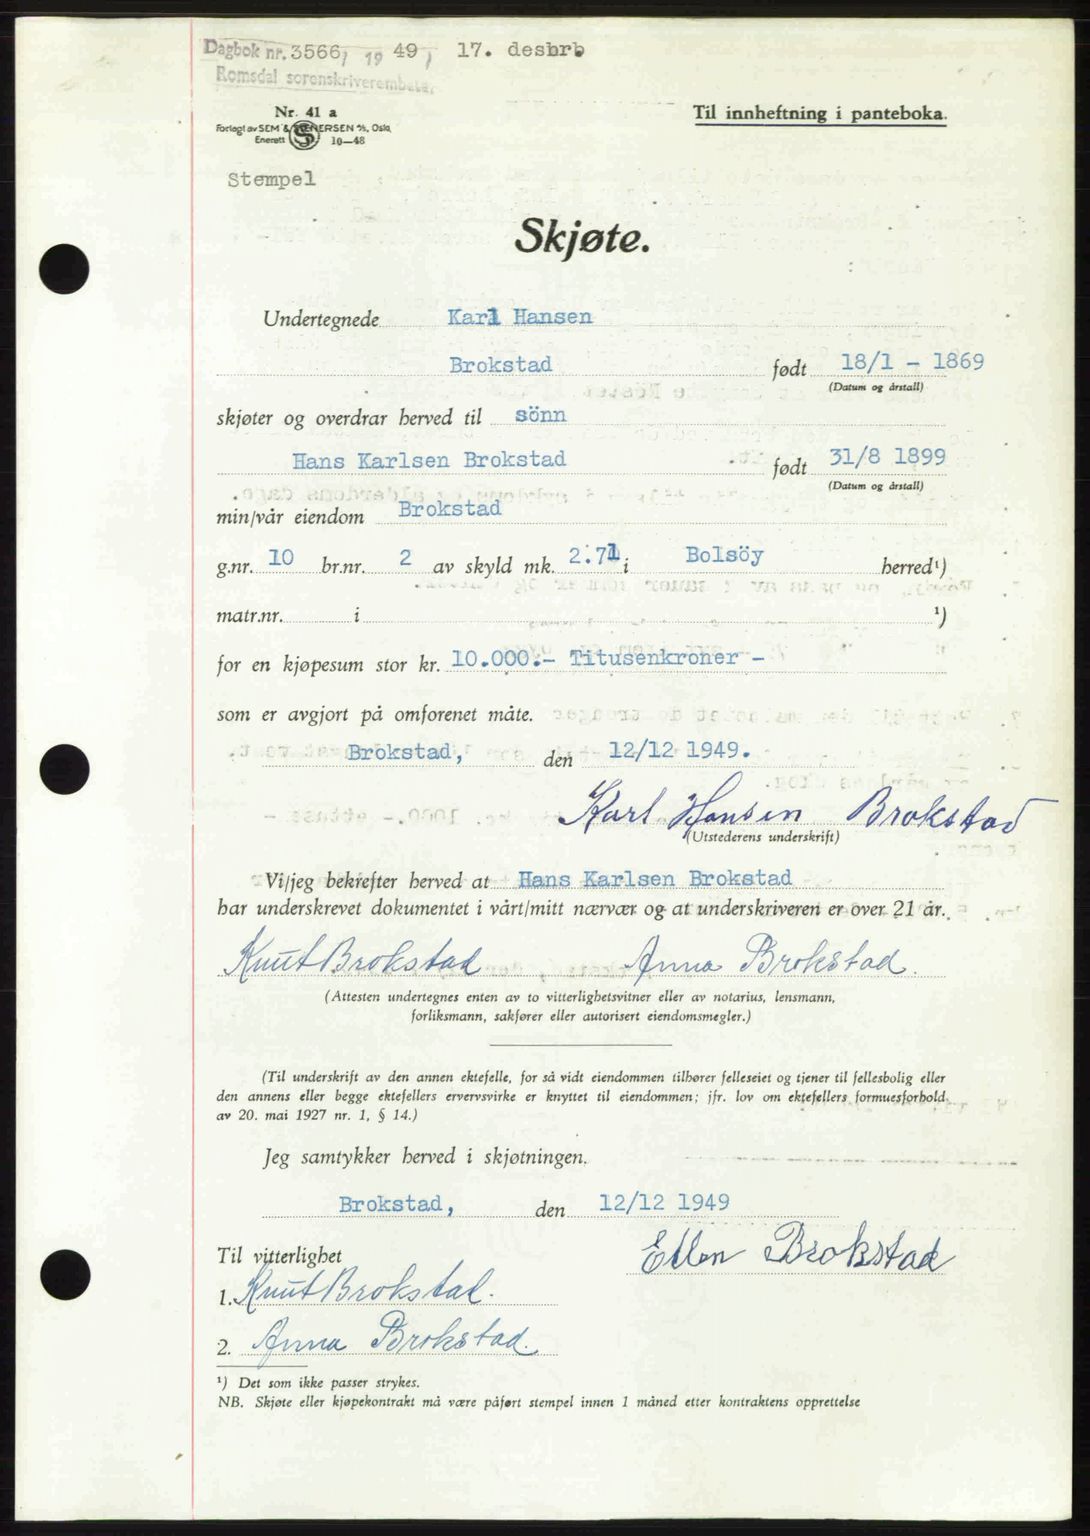 Dagbok nr. 3566, 19 49, 17. desbrb
Romsdal sorenskriverembete.
Nr. 41 a
Forlagt av SEM & STENERSEN A/S, Oslo.
Enerett 10—48
Til innheftning i panteboka.
Stempel
Skjøte.
Undertegnede Karl Hansen
Brokstad født 18/1 - 1869
(Datum og årstall)
skjøter og overdrar herved til sönn
Hans Karlsen Brokstad født 31/8 1899
(Datum og årstall)
min/vår eiendom Brokstad
g.nr. 10 br.nr. 2 av skyld mk. 2.71 i Bolsöy herred¹)
matr.nr. i ¹)
for en kjøpesum stor kr. 10.000.- Titusenkroner -
som er avgjort på omforenet måte.
Brokstad, den 12/12 1949.
Karl Hansen Brokstad
(Utstederens underskrift)
Vi/jeg bekrefter herved at Hans Karlsen Brokstad
har underskrevet dokumentet i vårt/mitt nærvær og at underskriveren er over 21 år.
Knut Brokstad Anna Brokstad.
(Attesten undertegnes enten av to vitterlighetsvitner eller av notarius, lensmann,
forliksmann, sakfører eller autorisert eiendomsmegler.)
(Til underskrift av den annen ektefelle, for så vidt eiendommen tilhører felleseiet og tjener til fellesbolig eller
den annens eller begge ektefellers ervervsvirke er knyttet til eiendommen; jfr. lov om ektefellers formuesforhold
av 20. mai 1927 nr. 1, § 14.)
Jeg samtykker herved i skjøtningen.
Brokstad, den 12/12 1949
Til vitterlighet Ellen Brokstad
1. Knut Brokstad.
2. Anna Brokstad.
¹) Det som ikke passer strykes.
NB. Skjøte eller kjøpekontrakt må være påført stempel innen 1 måned etter kontraktens opprettelse